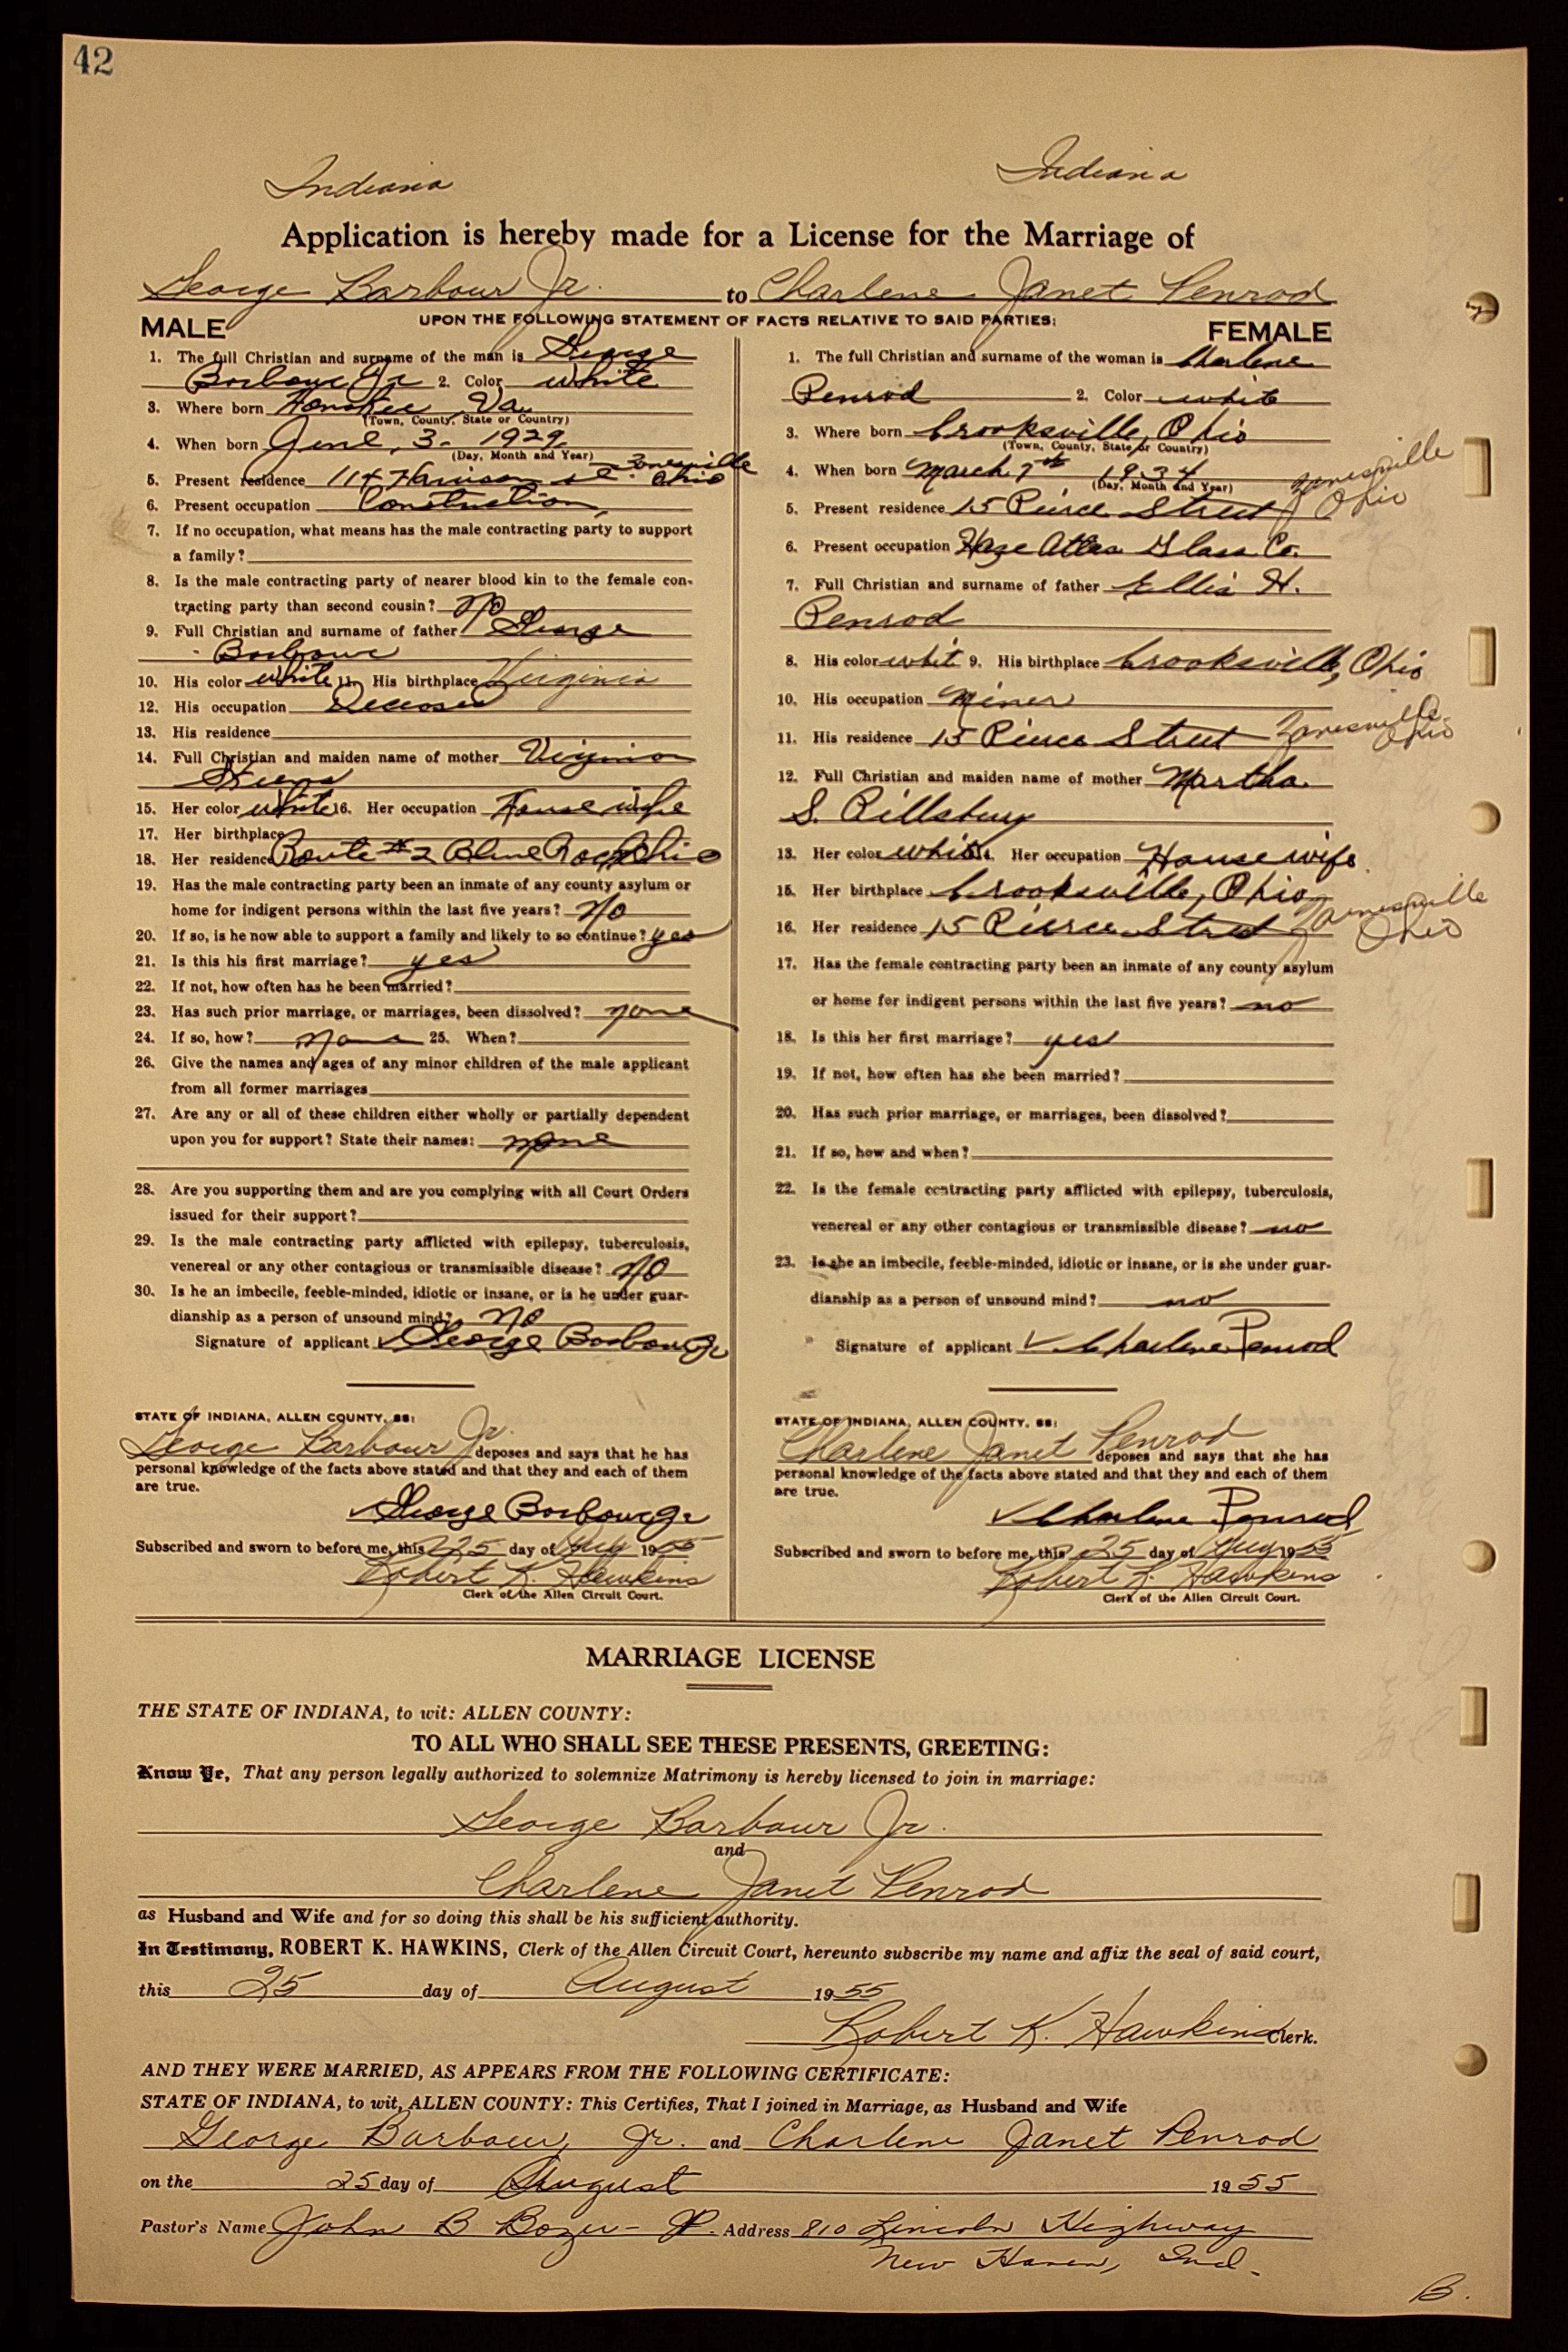 42
Indiana
Indiana
Application is hereby made for a License for the Marriage of
George Barbour Jr. to Charlene Janet Penrod
UPON THE FOLLOWING STATEMENT OF FACTS RELATIVE TO SAID PARTIES:
MALE
1. The full Christian and surname of the man is George
Barbour Jr 2. Color white
3. Where born Va.
(Town, County, State or Country)
4. When born June, 3- 1929
(Day, Month and Year)
5. Present residence 114 Harrison st. Zanesville Ohio
6. Present occupation Construction
7. If no occupation, what means has the male contracting party to support
a family?
8. Is the male contracting party of nearer blood kin to the female con-
tracting party than second cousin? No
9. Full Christian and surname of father George
Barbour
10. His color white 11. His birthplace Virginia
12. His occupation Deceased
13. His residence
14. Full Christian and maiden name of mother Virginia
15. Her color white 16. Her occupation House wife
17. Her birthplace
18. Her residence Route #2 Blue Rock Ohio
19. Has the male contracting party been an inmate of any county asylum or
home for indigent persons within the last five years? No
20. If so, is he now able to support a family and likely to so continue? yes
21. Is this his first marriage? yes
22. If not, how often has he been married?
23. Has such prior marriage, or marriages, been dissolved? none
24. If so, how? none 25. When?
26. Give the names and ages of any minor children of the male applicant
from all former marriages
27. Are any or all of these children either wholly or partially dependent
upon you for support? State their names: none
28. Are you supporting them and are you complying with all Court Orders
issued for their support?
29. Is the male contracting party afflicted with epilepsy, tuberculosis,
venereal or any other contagious or transmissible disease? NO
30. Is he an imbecile, feeble-minded, idiotic or insane, or is he under guar-
dianship as a person of unsound mind? NO
Signature of applicant ✓ George Barbour Jr
STATE OF INDIANA, ALLEN COUNTY, SS:
George Barbour Jr. deposes and says that he has
personal knowledge of the facts above stated and that they and each of them
are true.
✓ George Barbour Jr
Subscribed and sworn to before me, this 25 day of Aug 1955
Robert K. Hawkins
Clerk of the Allen Circuit Court.
FEMALE
1. The full Christian and surname of the woman is Charlene
Penrod 2. Color white
3. Where born Crooksville, Ohio
(Town, County, State or Country)
4. When born March 7th 1934
(Day, Month and Year)
5. Present residence 15 Pierce Street Zanesville Ohio
6. Present occupation Haze Atlas Glass Co.
7. Full Christian and surname of father Ellis H.
Penrod
8. His color whit 9. His birthplace Crooksville, Ohio
10. His occupation Miner
11. His residence 15 Pierce Street Zanesville Ohio
12. Full Christian and maiden name of mother Martha
S. Pillsbury
13. Her color white 14. Her occupation House wife
15. Her birthplace Crooksville, Ohio
16. Her residence 15 Pierce Street Zanesville Ohio
17. Has the female contracting party been an inmate of any county asylum
or home for indigent persons within the last five years? no
18. Is this her first marriage? yes
19. If not, how often has she been married?
20. Has such prior marriage, or marriages, been dissolved?
21. If so, how and when?
22. Is the female contracting party afflicted with epilepsy, tuberculosis,
venereal or any other contagious or transmissible disease? no
23. Is she an imbecile, feeble-minded, idiotic or insane, or is she under guar-
dianship as a person of unsound mind? no
Signature of applicant ✓ Charlene Penrod
STATE OF INDIANA, ALLEN COUNTY, SS:
Charlene Janet Penrod deposes and says that she has
personal knowledge of the facts above stated and that they and each of them
are true.
✓ Charlene Penrod
Subscribed and sworn to before me, this 25 day of Aug 1955
Robert K. Hawkins
Clerk of the Allen Circuit Court.
MARRIAGE LICENSE
THE STATE OF INDIANA, to wit: ALLEN COUNTY:
TO ALL WHO SHALL SEE THESE PRESENTS, GREETING:
Know Ye, That any person legally authorized to solemnize Matrimony is hereby licensed to join in marriage:
George Barbour Jr.
and
Charlene Janet Penrod
as Husband and Wife and for so doing this shall be his sufficient authority.
In Testimony, ROBERT K. HAWKINS, Clerk of the Allen Circuit Court, hereunto subscribe my name and affix the seal of said court,
this 25 day of August 1955
Robert K. Hawkins Clerk.
AND THEY WERE MARRIED, AS APPEARS FROM THE FOLLOWING CERTIFICATE:
STATE OF INDIANA, to wit, ALLEN COUNTY: This Certifies, That I joined in Marriage, as Husband and Wife
George Barbour, Jr. and Charlene Janet Penrod
on the 25 day of August 1955
Pastor's Name John B Bozer - JP. Address 810 Lincoln Highway
New Haven, Ind.
B.